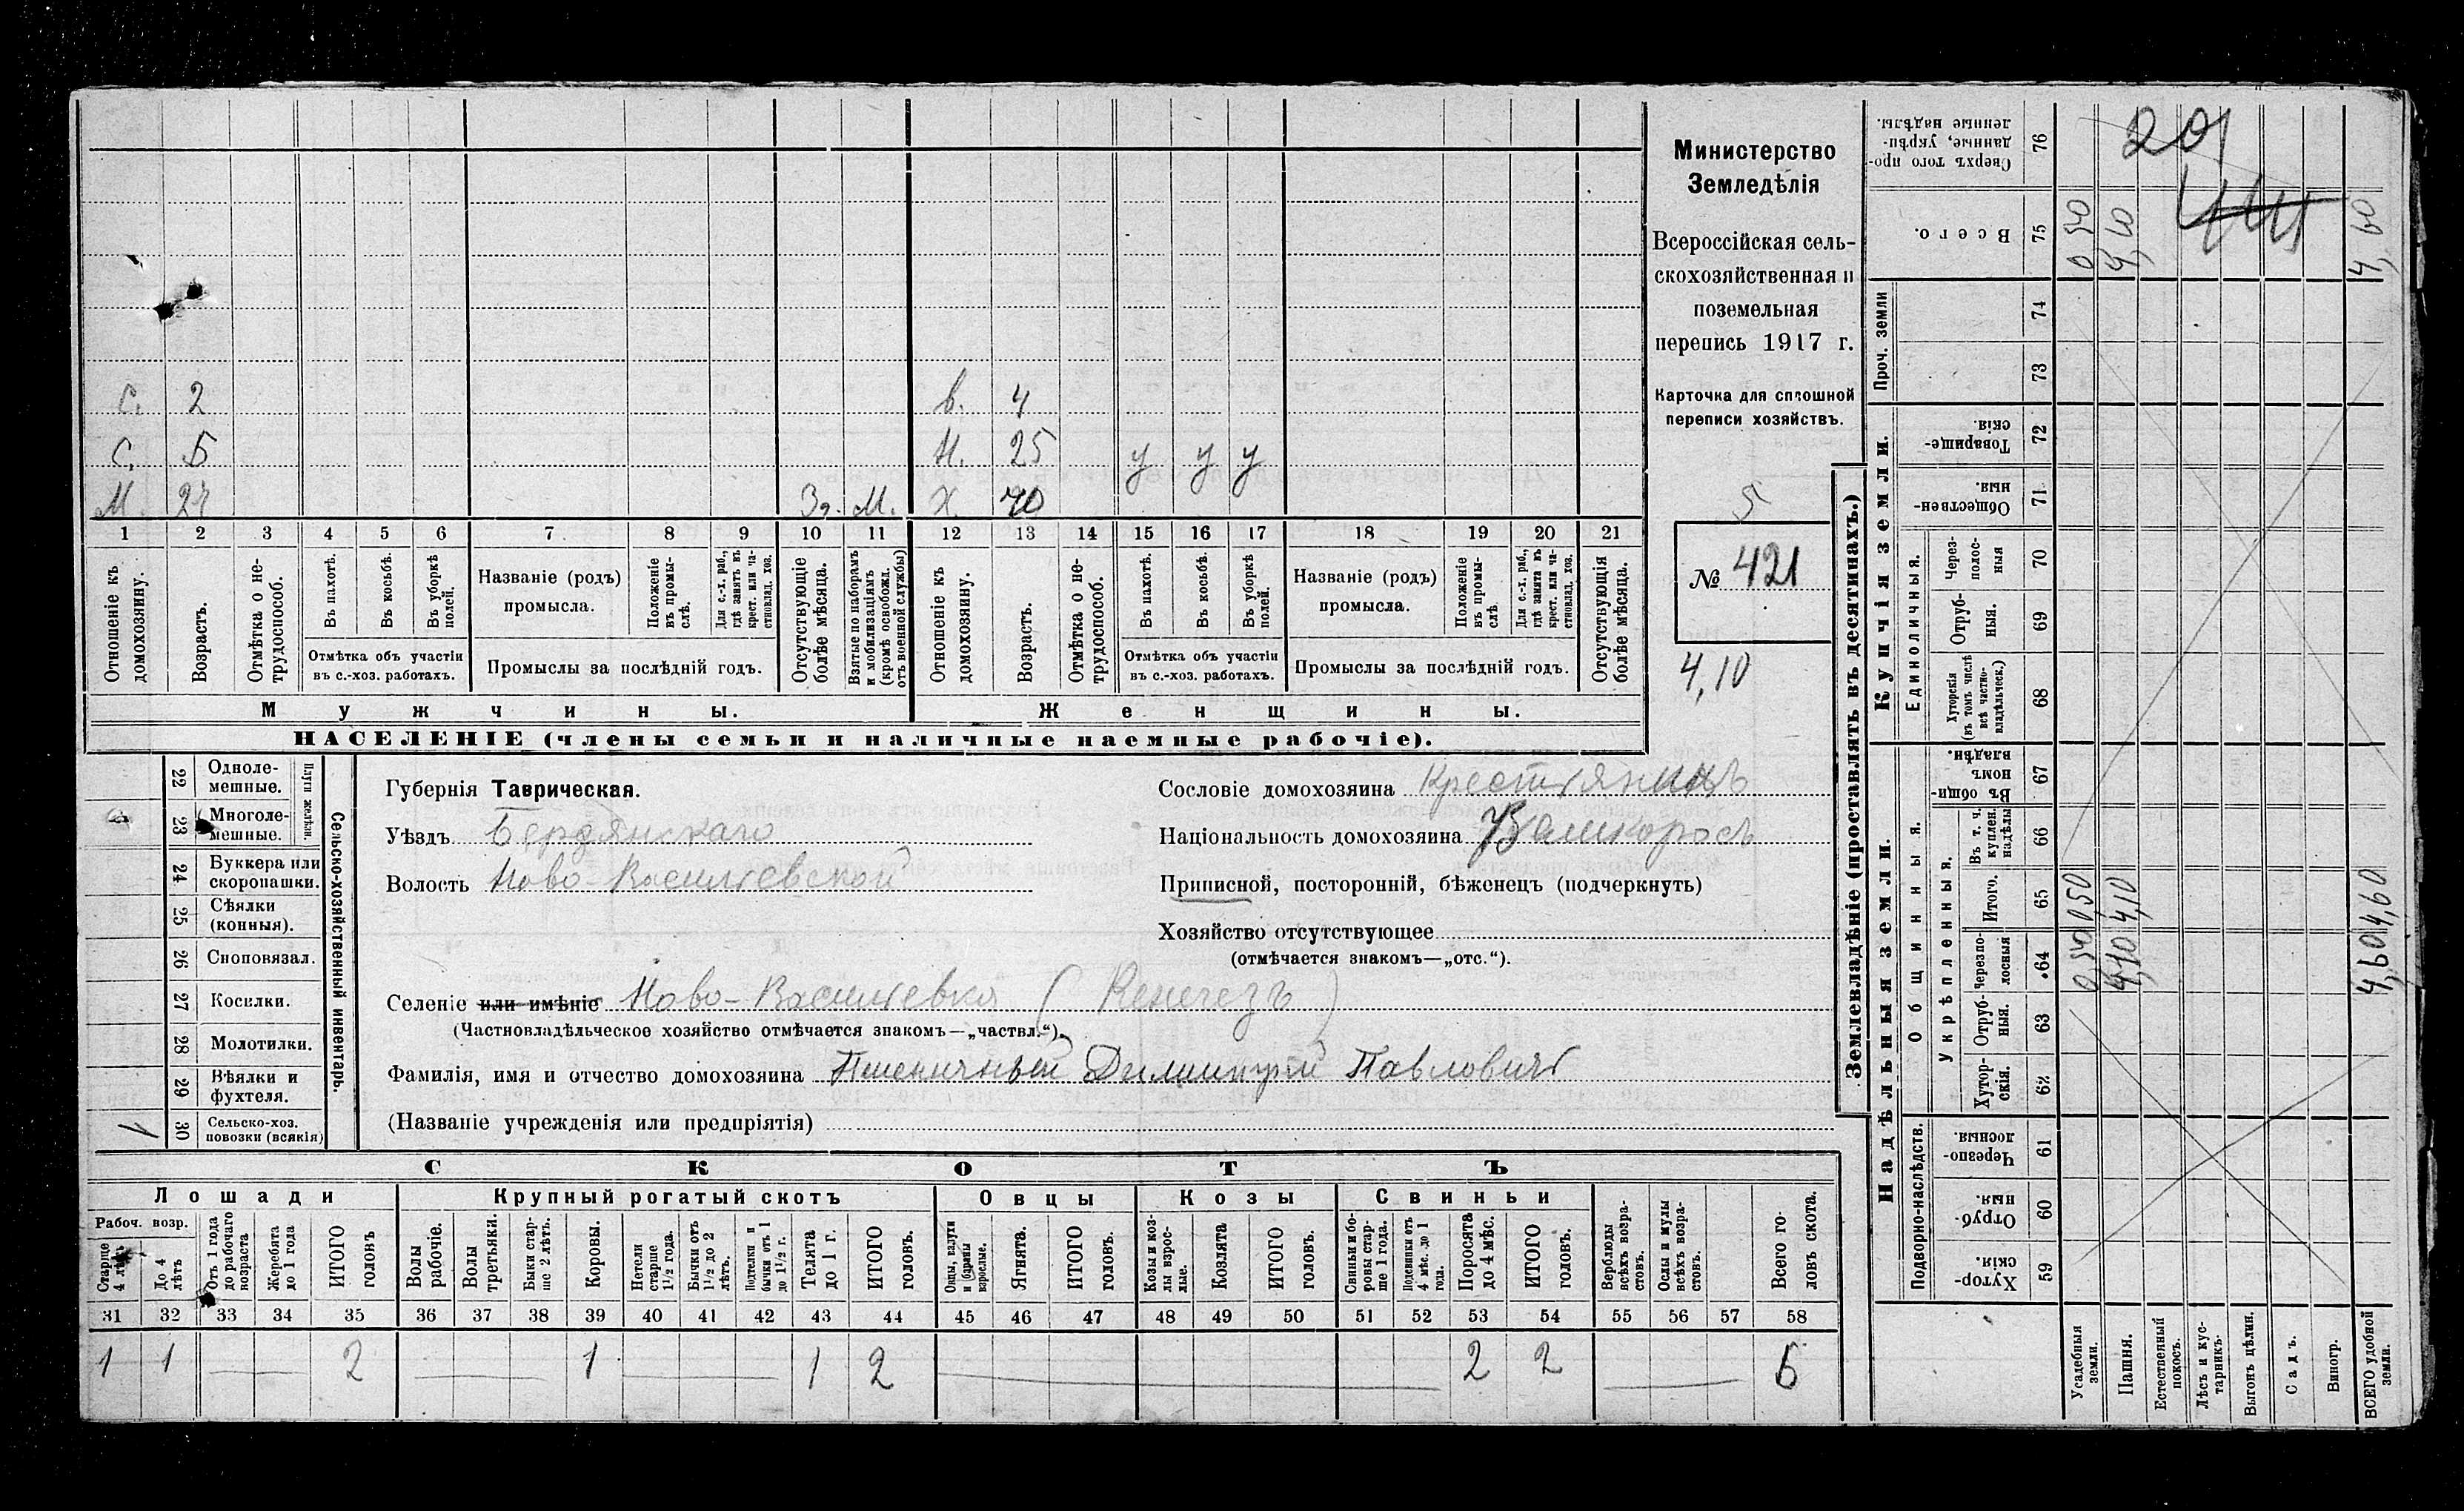 С. 2 в. 4
С. 5 Н. 25 у у у
М. 27 Зд. М. Х. 40
1 2 3 4 5 6 7 8 9 10 11 12 13 14 15 16 17 18 19 20 21
Отношеніе къ домохозяину.
Возрастъ.
Отмѣтка о не-трудоспособ.
Въ пахотѣ.
Въ косьбѣ.
Въ уборкѣ полей.
Отмѣтка объ участіи
въ с.-хоз. работахъ.
Названіе (родъ)
промысла.
Положеніе въ промы-слѣ.
Для с.-х. раб., гдѣ занятъ въ крест. или ча-стновлад. хоз.
Промыслы за послѣдній годъ.
Отсутствующіе болѣе мѣсяца.
Взятые по наборамъ и мобилизаціямъ (кромѣ освобожд. отъ военной службы)
Отношеніе къ домохозяину.
Возрастъ.
Отмѣтка о не-трудоспособ.
Въ пахотѣ.
Въ косьбѣ.
Въ уборкѣ полей.
Отмѣтка объ участіи
въ с.-хоз. работахъ.
Названіе (родъ)
промысла.
Положеніе въ промы-слѣ.
Для с.-х. раб., гдѣ занята въ крест. или ча-стновлад. хоз.
Промыслы за послѣдній годъ.
Отсутствующія болѣе мѣсяца.
Мужчины. Женщины.
НАСЕЛЕНІЕ (члены семьи и наличные наемные рабочіе).
Министерство
Земледѣлія
Всероссійская сель-
скохозяйственная и
поземельная
перепись 1917 г.
Карточка для сплошной
переписи хозяйствъ.
5
№ 421
4,10
Сельско-хозяйственный инвентарь.
Плуги желѣзн.
22 Одноле-мешные.
23 Многоле-мешные.
24 Буккера или скоропашки.
25 Сѣялки (конныя).
26 Сноповязал.
27 Косилки.
28 Молотилки.
29 Вѣялки и фухтеля.
30 Сельско-хоз. повозки (всякія) 1
Губернія Таврическая.
Уѣздъ Бердянскаго
Волость Ново-Васильевской
Сословіе домохозяина Крестьянинъ
Національность домохозяина Великороссъ
Приписной, посторонній, бѣженецъ (подчеркнуть)
Хозяйство отсутствующее
(отмѣчается знакомъ—„отс.“).
Селеніе или имѣніе Ново-Васильевка (Кенегезъ)
(Частновладѣльческое хозяйство отмѣчается знакомъ—„частвл.“).
Фамилія, имя и отчество домохозяина Пшеничный Димитрій Павловичъ
(Названіе учрежденія или предпріятія)
СКОТЪ
Лошади Крупный рогатый скотъ Овцы Козы Свиньи
Рабоч. возр.
Старше 4 лѣтъ
До 4 лѣтъ
Отъ 1 года до рабочаго возраста
Жеребята до 1 года
ИТОГО головъ
Волы рабочіе.
Волы третьяки.
Быки стар-ше 2 лѣтъ.
Коровы.
Нетели старше 1½ года.
Бычки отъ 1½ до 2 лѣтъ.
Подтелки и бычки отъ 1 до 1½ г.
Телята до 1 г.
ИТОГО головъ.
Овцы, валухи и бараны взрослые.
Ягнята.
ИТОГО головъ.
Козы и коз-лы взрос-лые.
Козлята
ИТОГО головъ.
Свиньи и бо-ровы стар-ше 1 года.
Подсвинки отъ 4 мѣс. до 1 года.
Поросята до 4 мѣс.
ИТОГО головъ.
Верблюды всѣхъ возра-стовъ.
Ослы и мулы всѣхъ возра-стовъ.
Всего го-ловъ скота.
31 32 33 34 35 36 37 38 39 40 41 42 43 44 45 46 47 48 49 50 51 52 53 54 55 56 57 58
1 1 — 2 — 1 — 1 2 — 2 2 — 6
Землевладѣніе (проставлять въ десятинахъ.)
Надѣльныя земли.
Купчія земли.
Проч. земли
Подворно-наслѣдств.
Общинныя.
Укрѣпленныя.
Единоличныя.
76 Сверхъ того про-данные, укрѣп-ленные надѣлы.
75 Всего. 0,50 4,10 4,60
74
73
72 Товарище-скія.
71 Обществен-ныя.
70 Через-полос-ныя
69 Отруб-ныя.
68 Хуторскія (въ томъ числѣ всѣ частно-владѣльческ.)
67 Въ общин-номъ владѣн.
66 Въ т. ч. куплен. надѣлы
65 Итого. 0,50 4,10 4,60
64 Черезпо-лосныя 0,50 4,10 4,60
63 Отруб-ныя.
62 Хутор-скія.
61 Черезпо-лосныя.
60 Отруб-ныя.
59 Хутор-скія.
Усадебныя земли.
Пашня.
Естественный покосъ.
Лѣсъ и кус-тарникъ.
Выгонъ цѣлин.
Садъ.
Виногр.
ВСЕГО удобной земли.